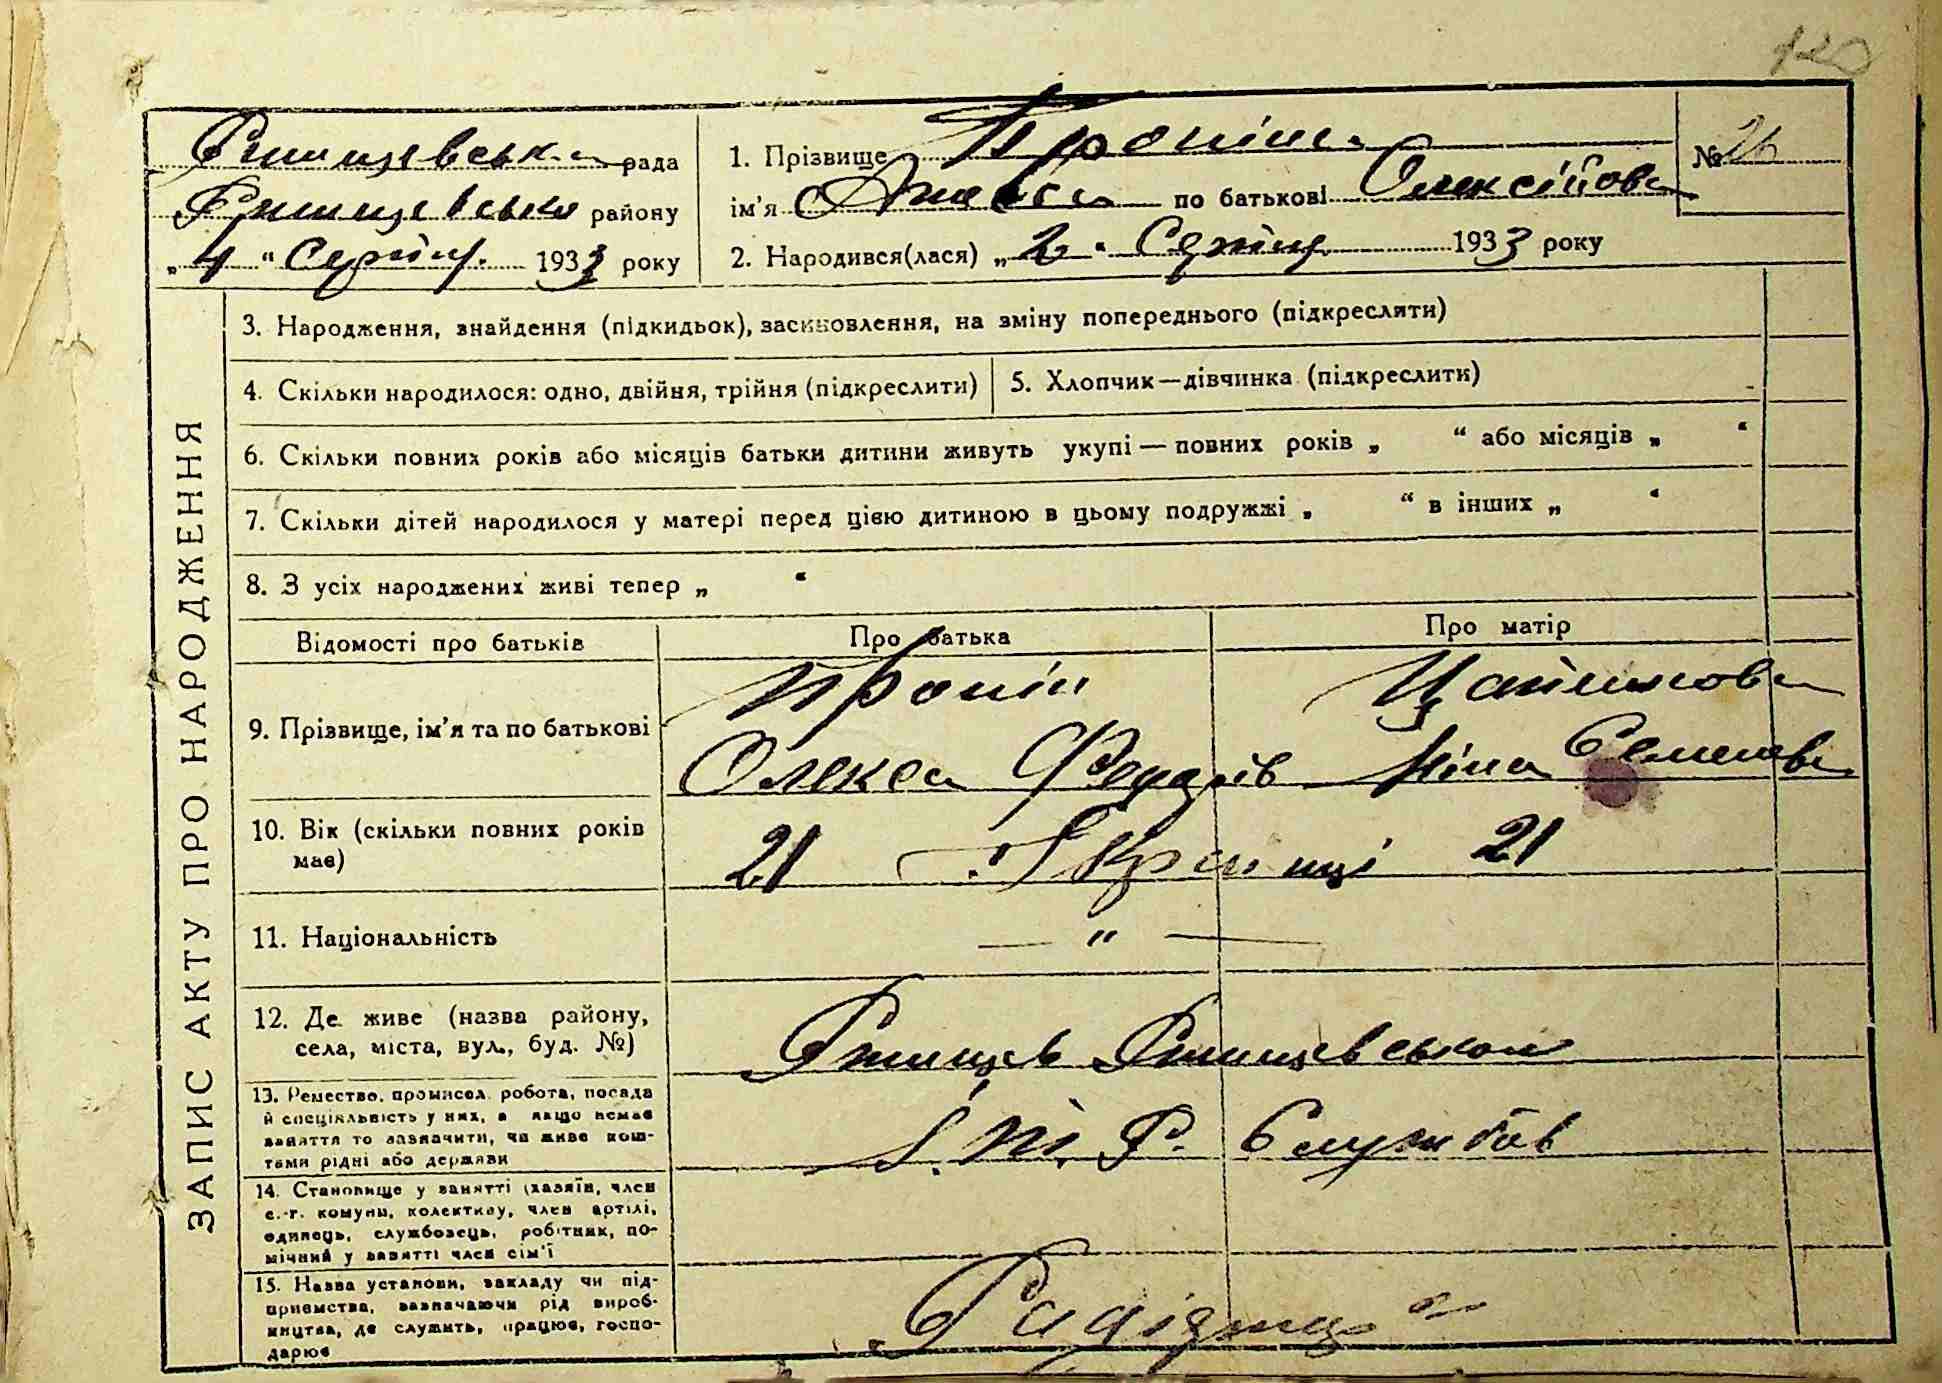 120
Ржищевська рада
Ржищевсько району
„4“ Серпня 1933 року
1. Прізвище Проніна
ім'я по батькові Олексійовна
2. Народився(лася) „2“ Серпня 1933 року
№ 26
ЗАПИС АКТУ ПРО НАРОДЖЕННЯ
3. Народження, знайдення (підкидьок), засиновлення, на зміну попереднього (підкреслити)
4. Скільки народилося: одно, двійня, трійня (підкреслити)
5. Хлопчик—дівчинка (підкреслити)
6. Скільки повних років або місяців батьки дитини живуть укупі — повних років „ “ або місяців „ “
7. Скільки дітей народилося у матері перед цією дитиною в цьому подружжі „ “ в інших „ “
8. З усіх народжених живі тепер „ “
Відомості про батьків
Про батька
Про матір
9. Прізвище, ім'я та по батькові
Пронін
Олекса Федорів
Ніна Семенівна
10. Вік (скільки повних років
має)
21
Українці
21
11. Національність
— " —
12. Де живе (назва району,
села, міста, вул., буд. №)
Ржищев Ржищевського
13. Ремество, промисел, робота, посада
й спеціяльність у них, а якщо немає
заняття то зазначити, чи живе кош-
тами рідні або держави
Службов
14. Становище у занятті (хазяїн, член
с.-г. комуни, колективу, член артілі,
одинець, службовець, робітник, по-
мічний у занятті член сім'ї
15. Назва установи, закладу чи під-
приємства, зазначаючи рід вироб-
ництва, де служить, працює, госпо-
дарює